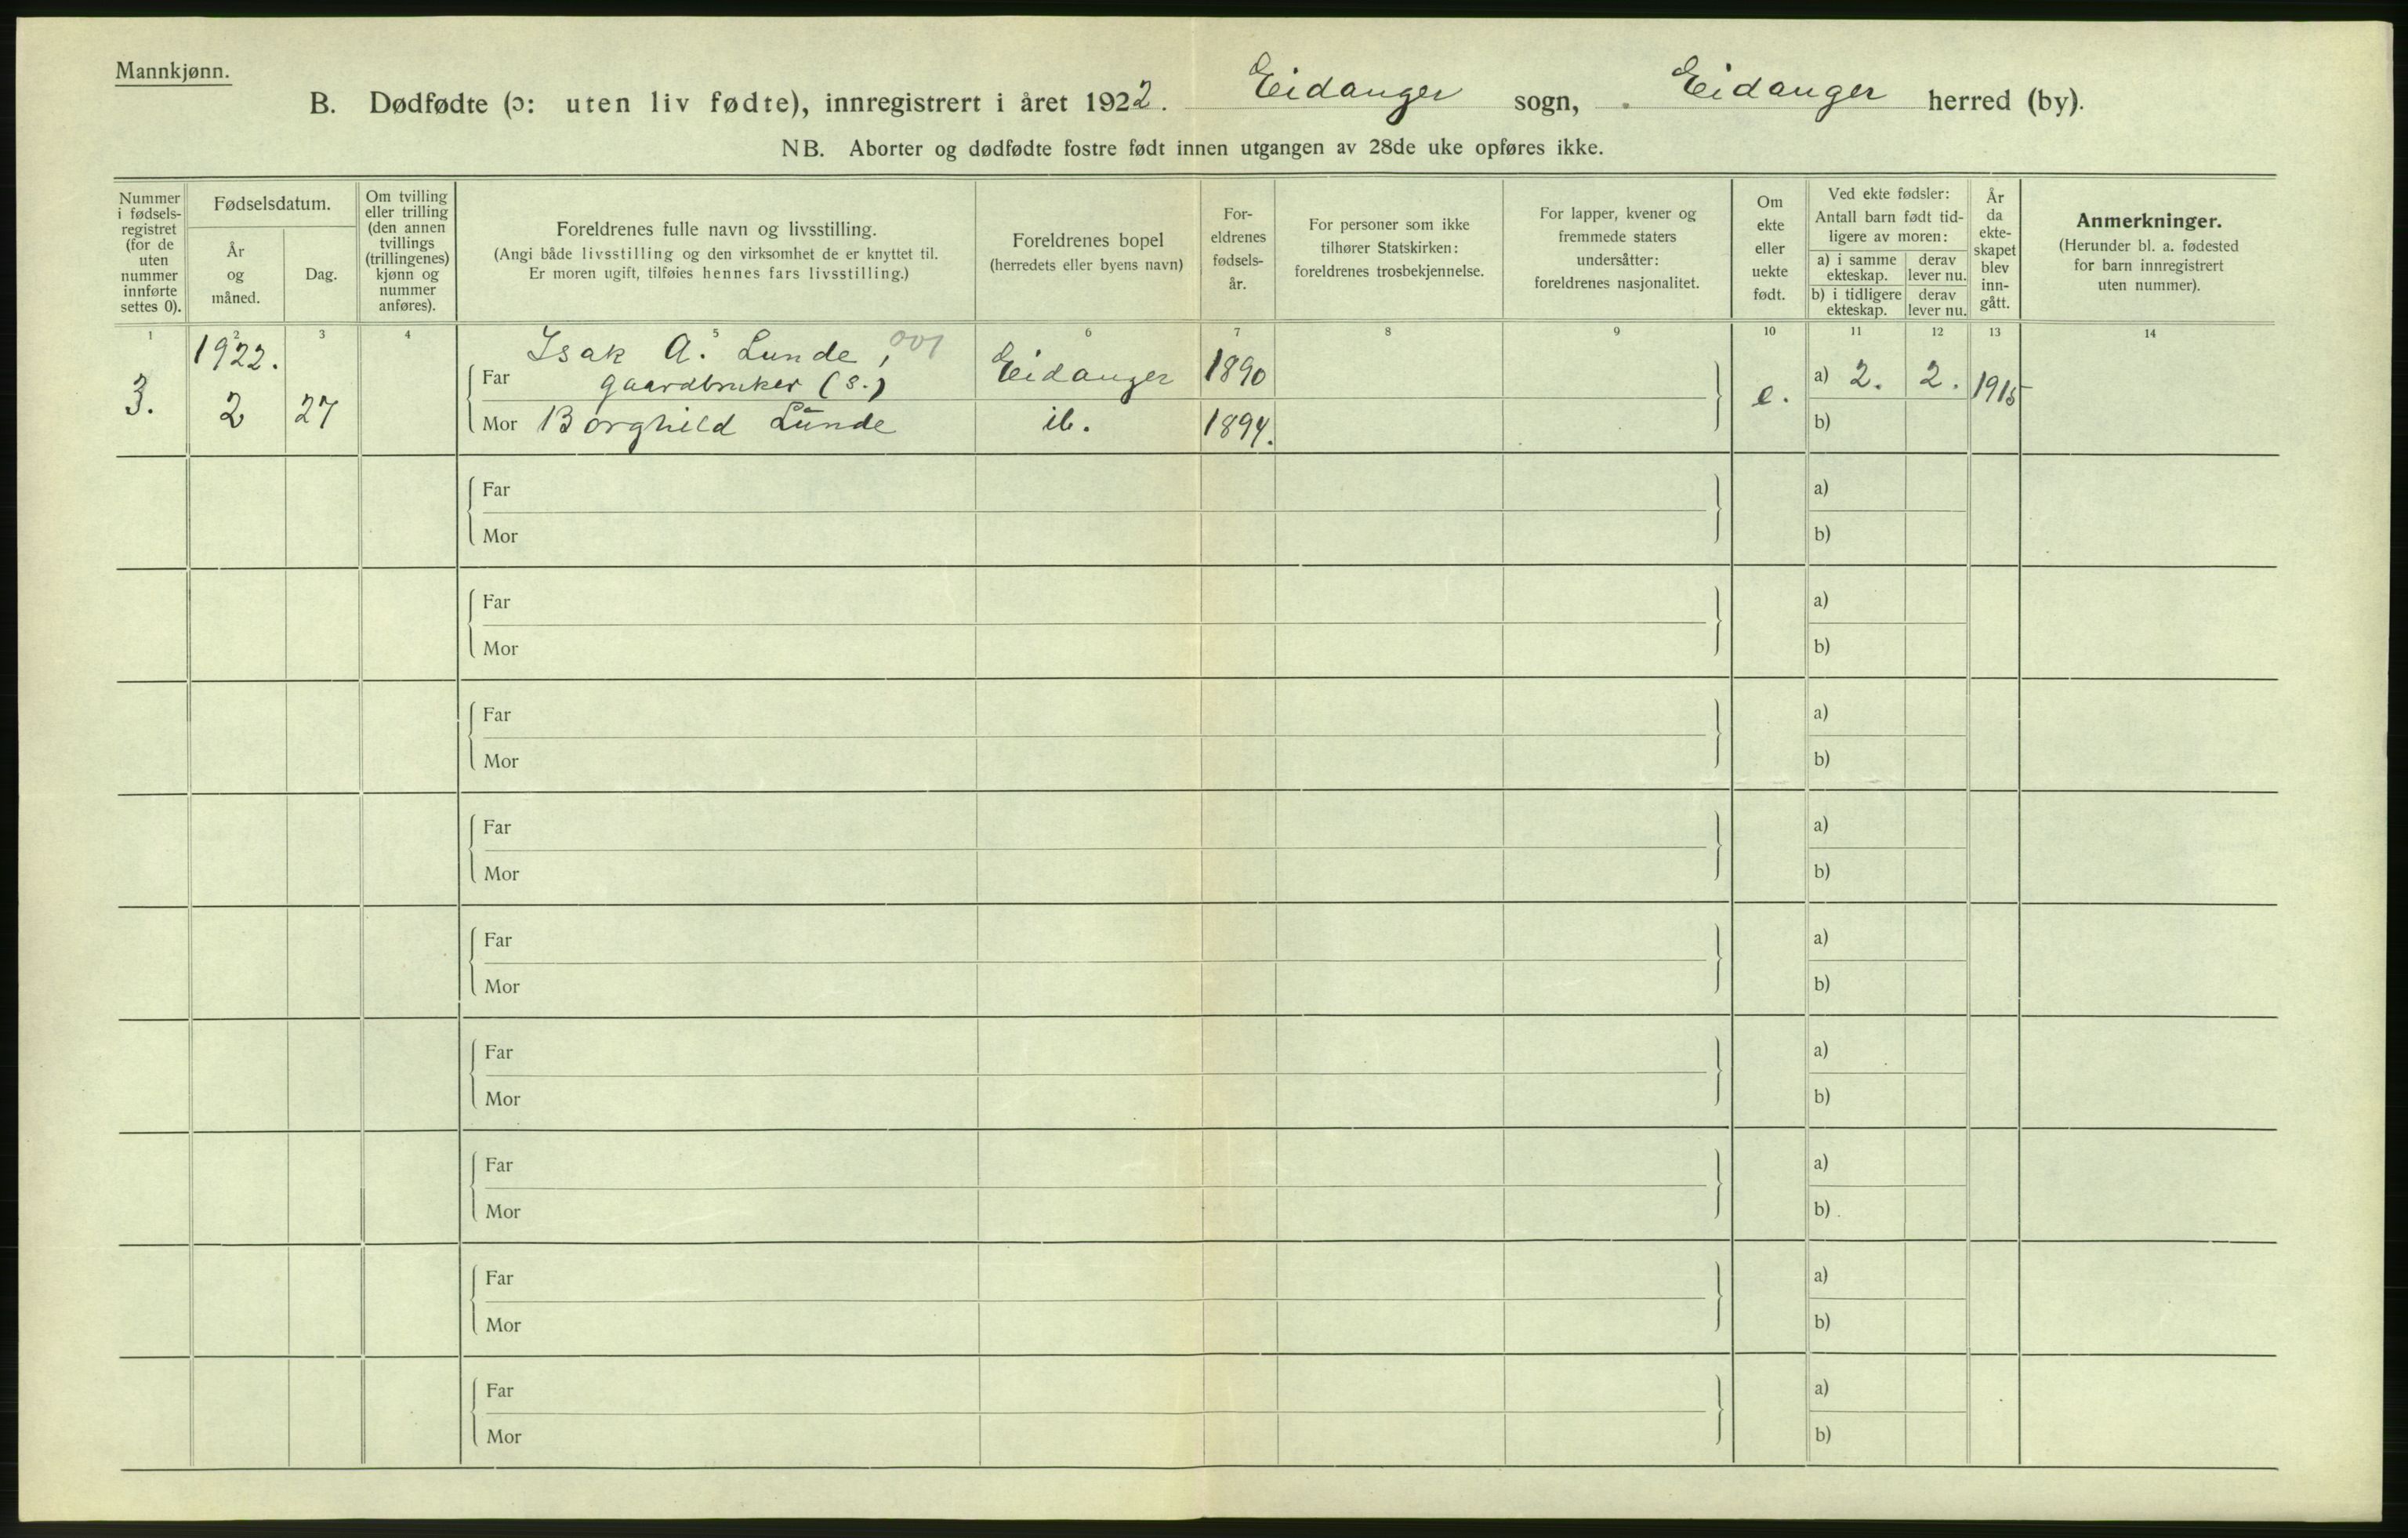 Mannkjønn.
B. Dødfødte (ɔ: uten liv fødte), innregistrert i året 1922. Eidanger sogn, Eidanger herred (by).
NB. Aborter og dødfødte fostre født innen utgangen av 28de uke opføres ikke.
Nummer
i fødsels-
registret
(for de
uten
nummer
innførte
settes 0).
Fødselsdatum.
År
og
måned.
Dag.
Om tvilling
eller trilling
(den annen
tvillings
(trillingenes)
kjønn og
nummer
anføres).
Foreldrenes fulle navn og livsstilling.
(Angi både livsstilling og den virksomhet de er knyttet til.
Er moren ugift, tilføies hennes fars livsstilling.)
Foreldrenes bopel
(herredets eller byens navn)
For-
eldrenes
fødsels-
år.
For personer som ikke
tilhører Statskirken:
foreldrenes trosbekjennelse.
For lapper, kvener og
fremmede staters
undersåtter:
foreldrenes nasjonalitet.
Om
ekte
eller
uekte
født.
Ved ekte fødsler:
Antall barn født tid-
ligere av moren:
a) i samme
ekteskap.
derav
lever nu.
b) i tidligere
ekteskap.
derav
lever nu.
År
da
ekte-
skapet
blev
inn-
gått.
Anmerkninger.
(Herunder bl. a. fødested
for barn innregistrert
uten nummer).
1 2 3 4 5 6 7 8 9 10 11 12 13 14
1922.
Isak A. Lunde, 001
3. 2 27 Far gaardbruker (s.) Eidanger 1890 e. a) 2. 2. 1915
Mor Borghild Lunde ib. 1894. b)
Far a)
Mor b)
Far a)
Mor b)
Far a)
Mor b)
Far a)
Mor b)
Far a)
Mor b)
Far a)
Mor b)
Far a)
Mor b)
Far a)
Mor b)
Far a)
Mor b)